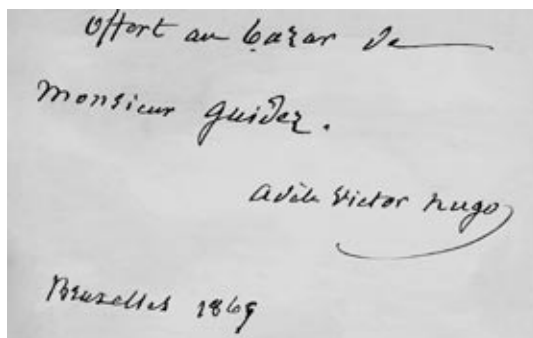 Offert au bazar de
Monsieur Guidez.
Adèle Victor Hugo
Bruxelles 1869